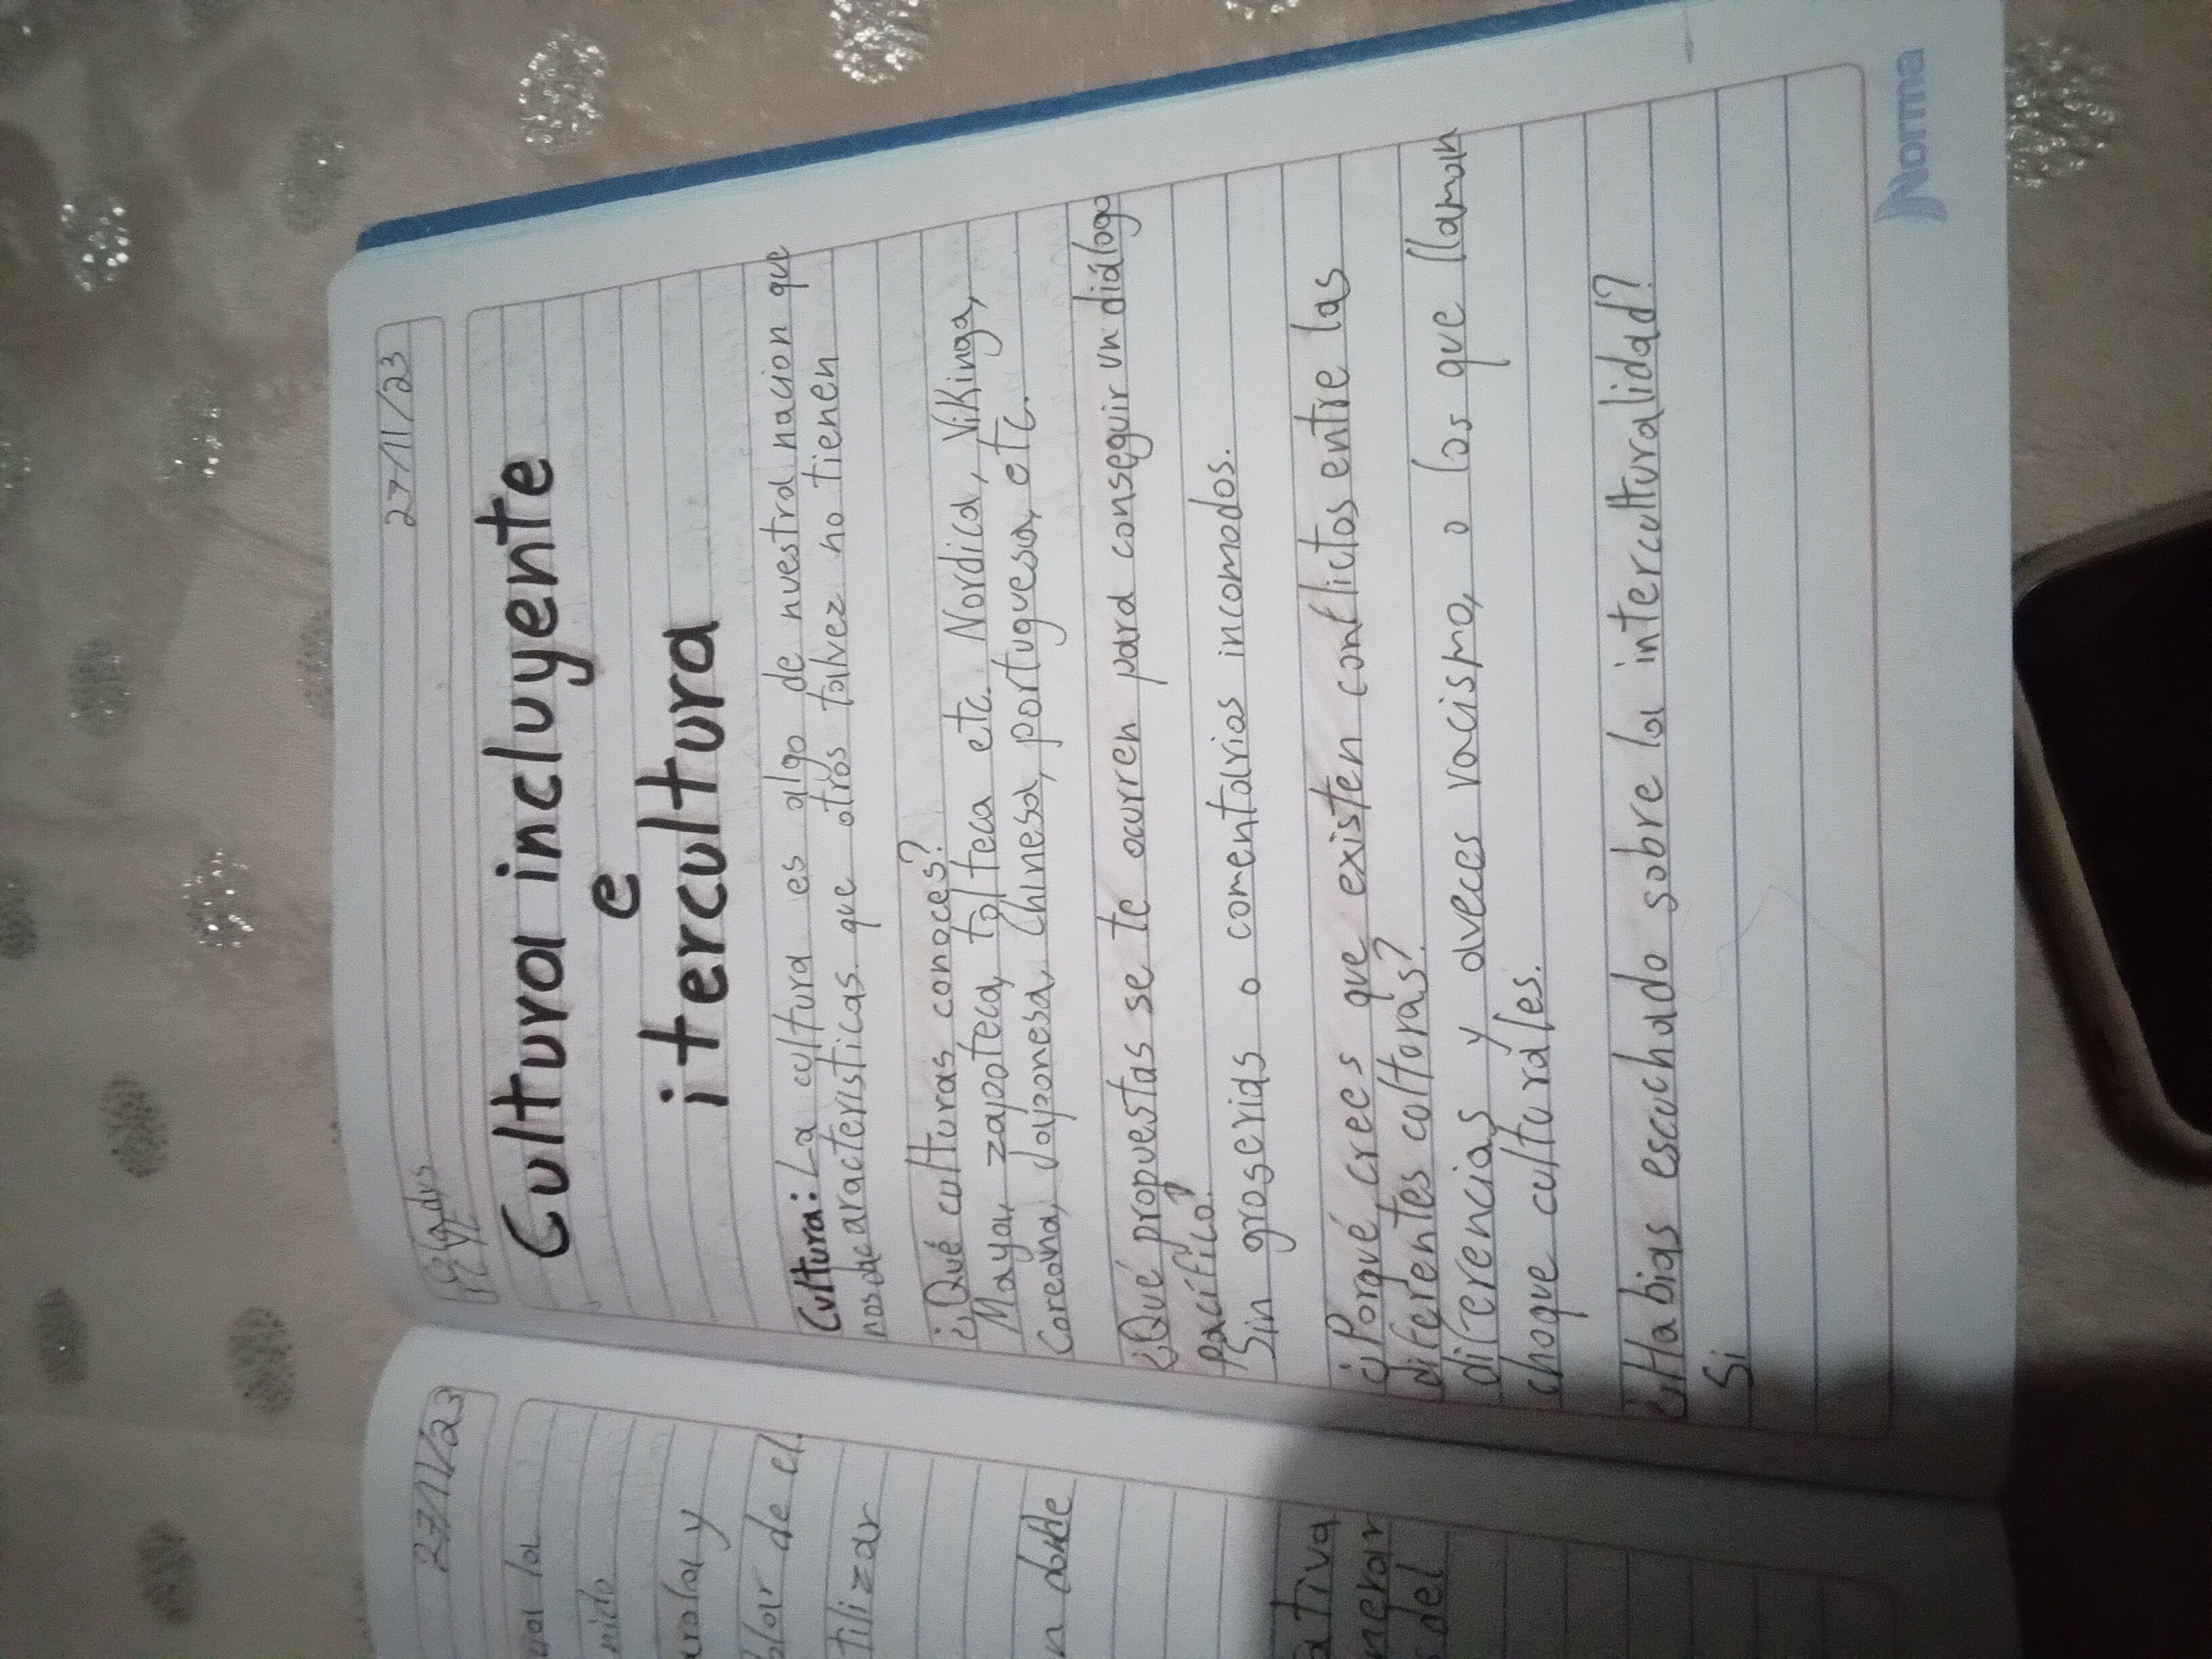 27/11/23
ral la
nido
arola y
blar de el
tilizar
n donde
ativa
nerar
del
Gladys
27/11/23
Cultura incluyente
e
itercultura
Cultura: La cultura es algo de nuestra nacion que
nos da caracteristicas que otros talvez no tienen
¿Qué culturas conoces?
Maya, zapoteca, tolteca etc. Nordica, Vikinga,
Coreana, Japonesa, Chinesa, portuguesa, etc.
¿Qué propuestas se te ocurren para conseguir un diálogo
pacífico?
Sin groserias o comentarios incomodos.
¿Porqué crees que existen conflictos entre las
diferentes culturas?
diferencias y aveces racismo, o los que llaman
choque culturales.
¿Habias escuchado sobre la interculturalidad?
Si
Norma